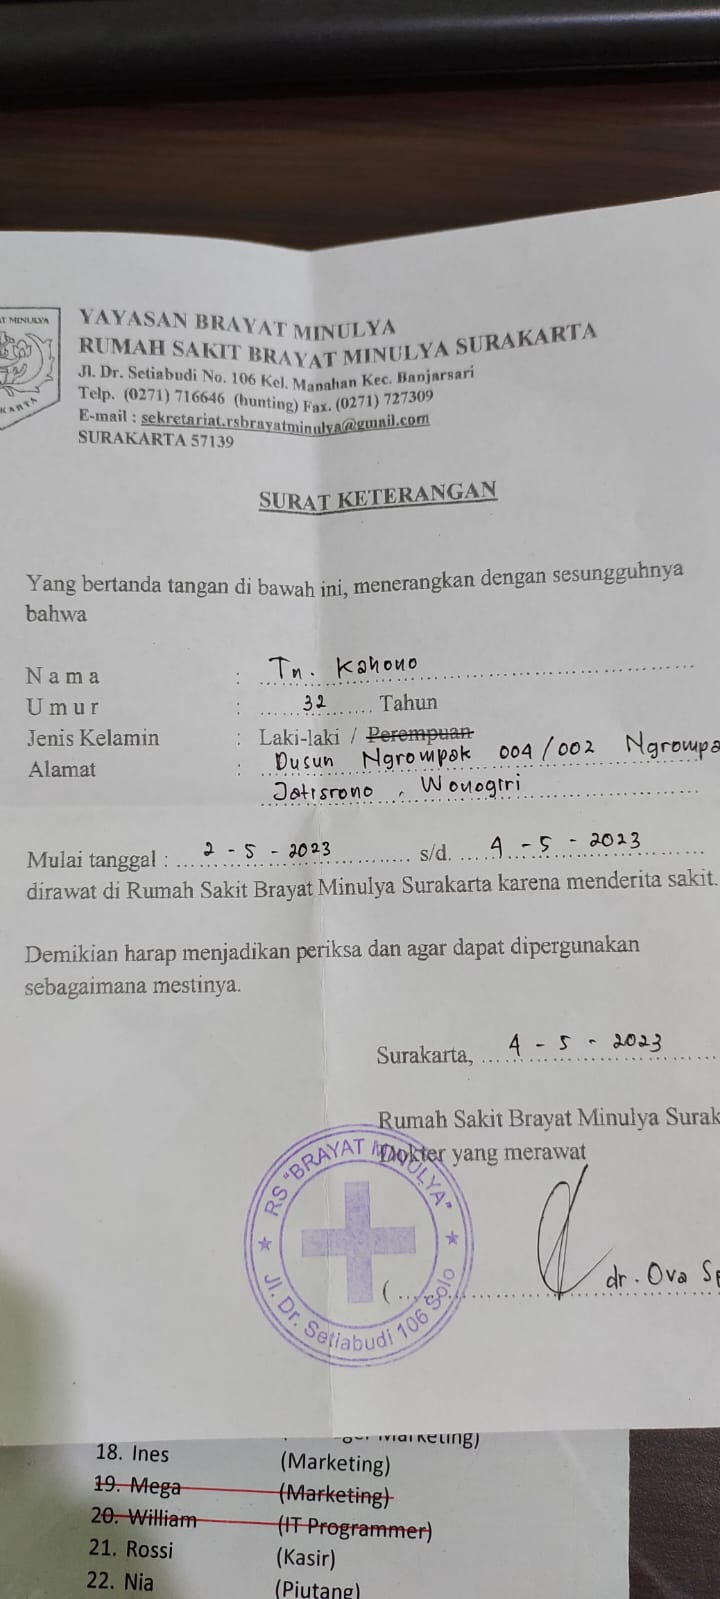 AT MINULYA
KARTA
YAYASAN BRAYAT MINULYA
RUMAH SAKIT BRAYAT MINULYA SURAKARTA
Jl. Dr. Setiabudi No. 106 Kel. Manahan Kec. Banjarsari
Telp. (0271) 716646 (hunting) Fax. (0271) 727309
E-mail : sekretariat.rsbrayatminulya@gmail.com
SURAKARTA 57139
SURAT KETERANGAN
Yang bertanda tangan di bawah ini, menerangkan dengan sesungguhnya
bahwa
Nama : Tn. Kahono
Umur : 32 Tahun
Jenis Kelamin : Laki-laki / Perempuan
Alamat : Dusun Ngrompak 004/002 Ngrompa
Jatisrono, Wonogiri
Mulai tanggal : 2 - 5 - 2023 s/d. 4 - 5 - 2023
dirawat di Rumah Sakit Brayat Minulya Surakarta karena menderita sakit.
Demikian harap menjadikan periksa dan agar dapat dipergunakan
sebagaimana mestinya.
Surakarta, 4 - 5 - 2023
Rumah Sakit Brayat Minulya Surak
Dokter yang merawat
RS "BRAYAT MINULYA"
Jl. Dr. Setiabudi 106 Solo
( dr. Ova Sp
Marketing)
18. Ines (Marketing)
19. Mega (Marketing)
20. William (IT Programmer)
21. Rossi (Kasir)
22. Nia (Piutang)